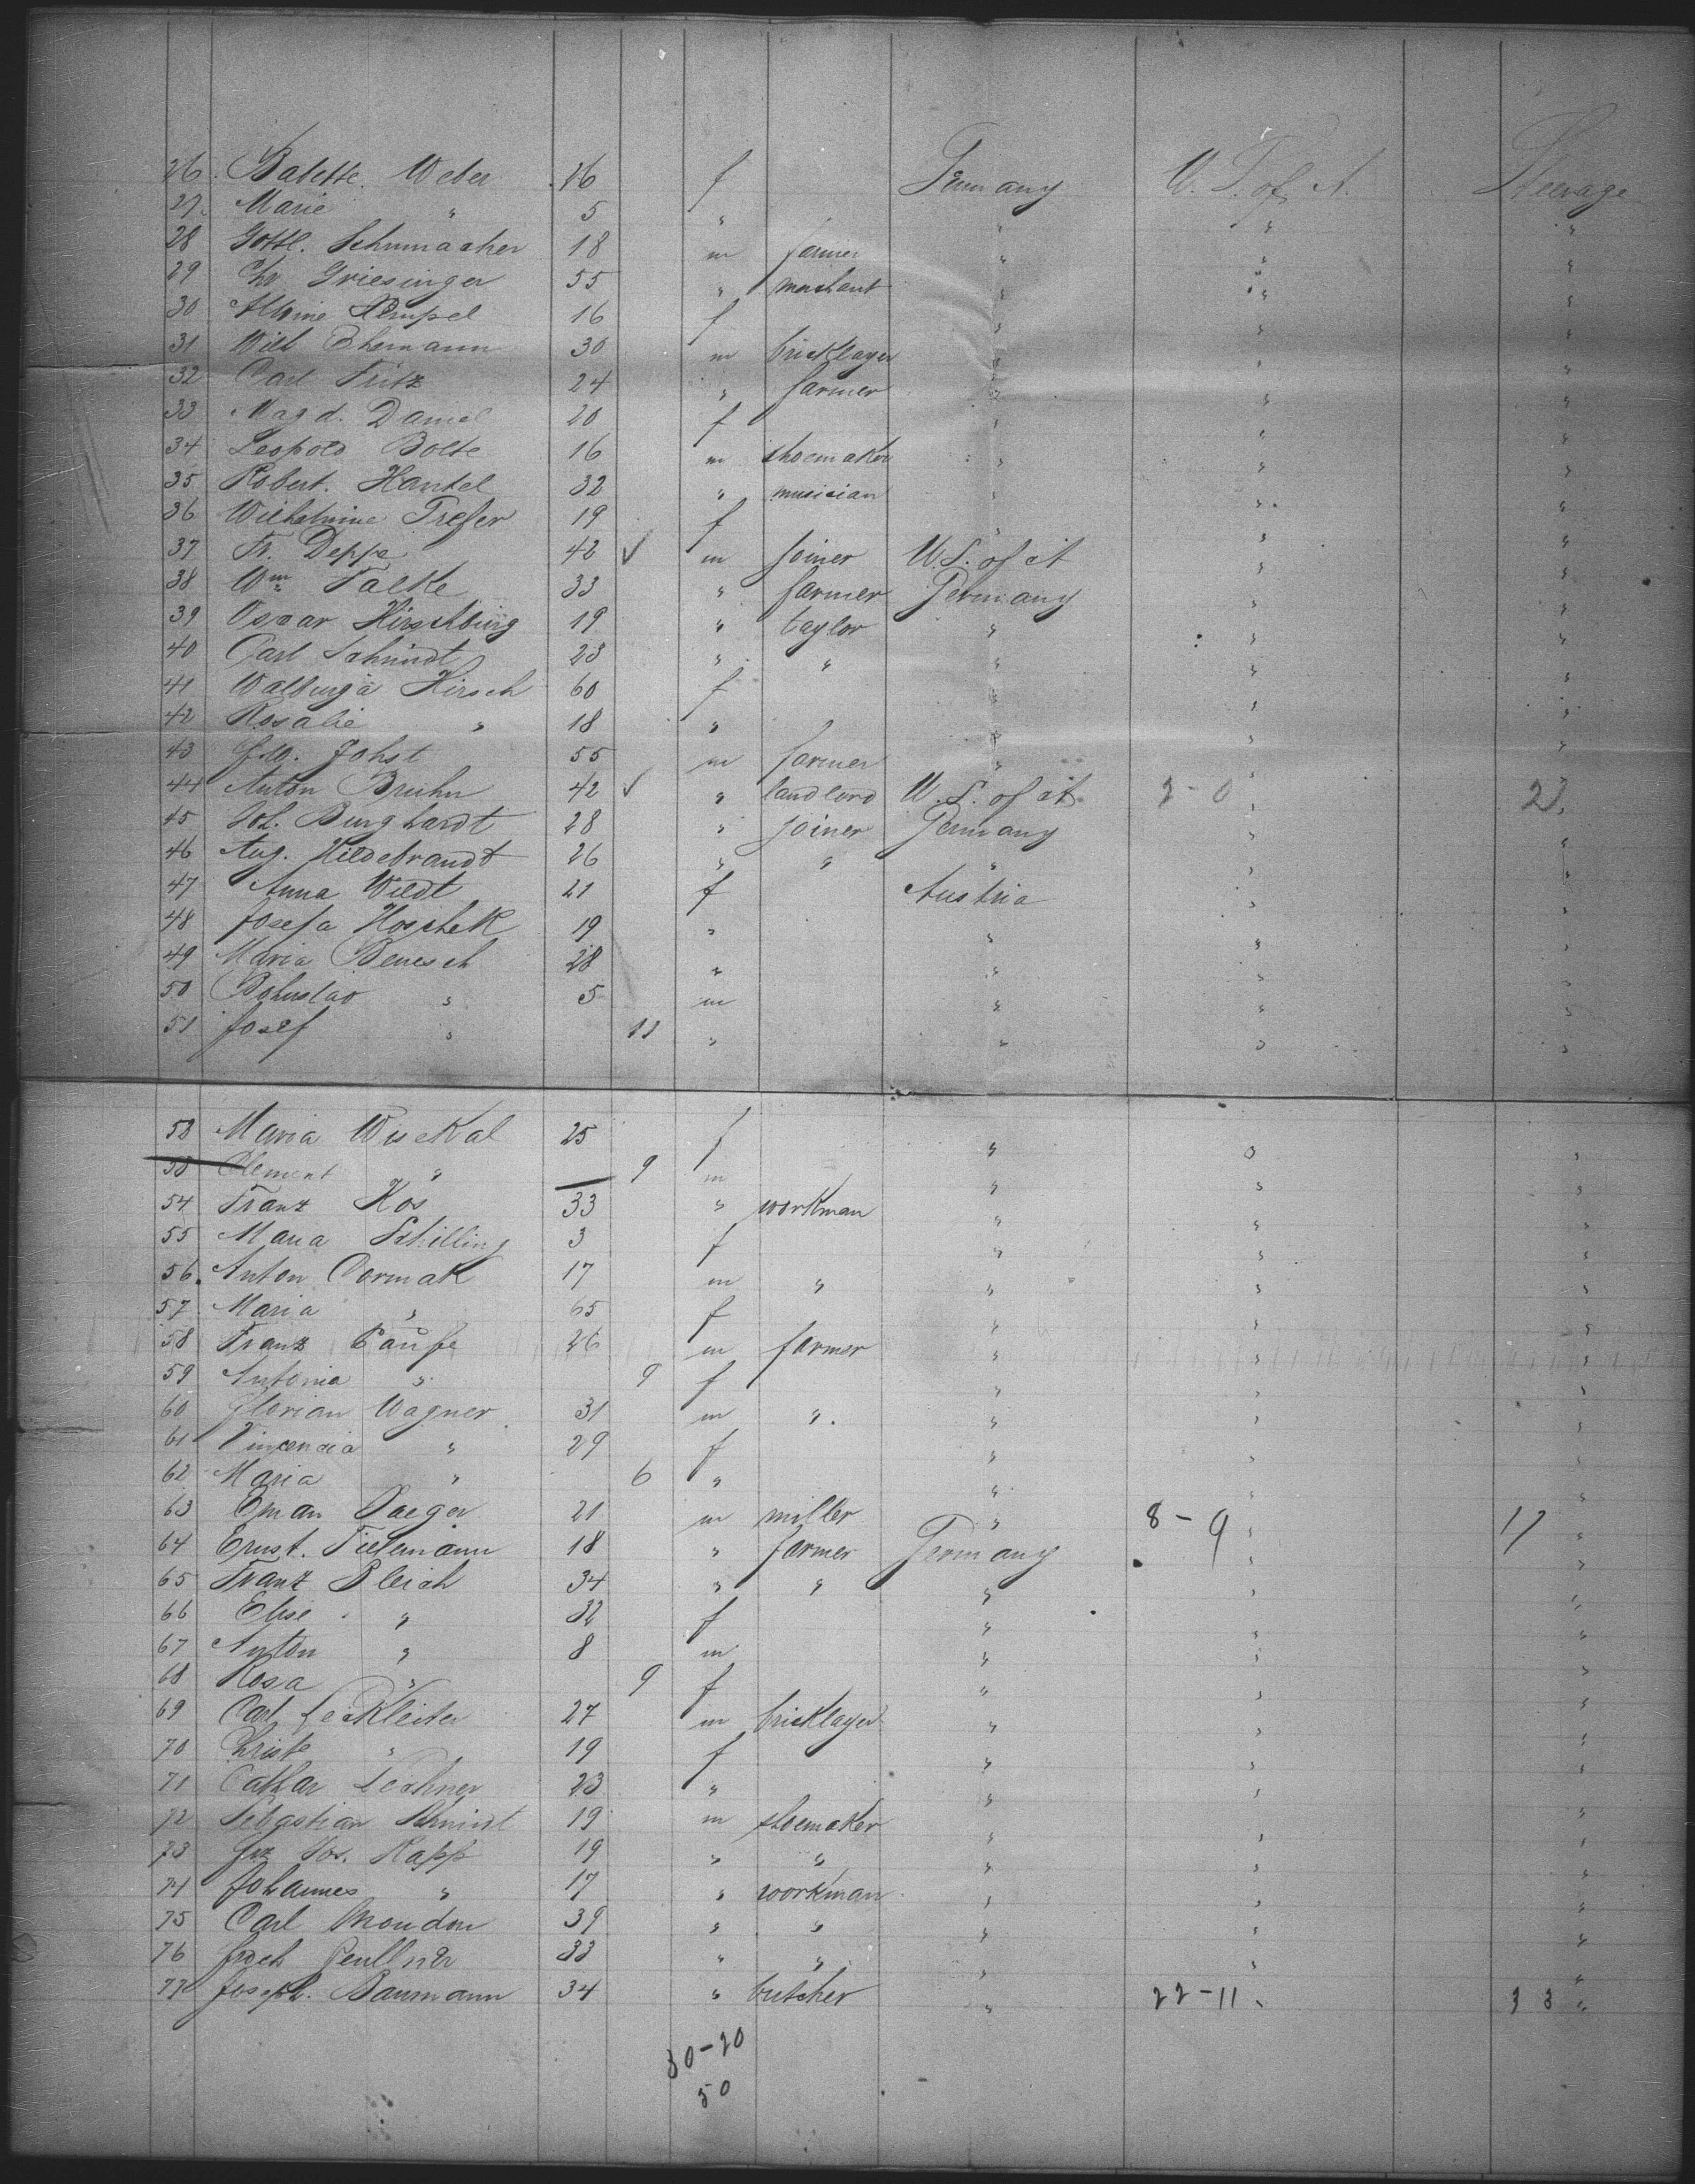 26. Babette Weber 26 f Germany U. S. of A. Steerage
27. Marie " 5 " " " "
28 Gottl. Schumacher 18 m farmer " " "
29 Chr. Griesinger 55 " merchant " " "
30 Albine Hempel 16 f " " "
31 Wilh Ehemann 30 m bricklayer " " "
32 Carl Fritz 24 " farmer " " "
33 Magd. Daniel 20 f " " "
34 Leopold Bolte 16 m shoemaker " " "
35 Robert. Hantel 32 " musician " " "
36 Wilhelmine Trefer 19 f " " "
37 Fr. Deppe 42 ✓ m joiner U. S. of A " "
38 Wm Falke 33 " farmer Germany " "
39 Oscar Hirschburg 19 " taylor " " "
40 Carl Schmidt 23 " " " " "
41 Walburga Hirsch 60 f " " "
42 Rosalie " 18 " " " "
43 Johst 55 m farmer " " "
44 Anton Bruhn 42 ✓ " landlord U. S. of A. 2-0 " 2 "
45 Joh. Burghardt 28 " joiner Germany " "
46 Aug. Hildebrandt 26 " " " " "
47 Anna Wildt 21 f Austria " "
48 Josefa Hoschek 19 " " " "
49 Maria Benesch 28 " " " "
50 Bohuslav " 5 m " " "
51 Josef " 11 " " " "
52 Maria Wuckal 25 f " " "
53 Clement " 9 m " " "
54 Franz Kos 33 " workman " " "
55 Maria Schilling 3 f " " "
56. Anton Cormak 17 m " " " "
57 Maria " 65 f " " "
58 Franz Paupe 26 m farmer " " "
59 Antonia " 9 f " " "
60 Florian Wagner 31 m ". " " "
61 Vincencia " 29 f " " "
62 Maria " 6 " " " "
63 Eman Saeger 21 m miller " 8-9 " 17 "
64 Ernst. Tielemann 18 " farmer Germany " "
65 Franz Bleich 34 " " " " "
66 Elise " 32 f " " "
67 Anton " 8 m " " "
68 Rosa " 9 f " " "
69 Carl Leckleiter 27 m bricklayer " " "
70 Christe " 19 f " " "
71 Cathar Lechner 23 " " " "
72 Sebastian Schmidt 19 m shoemaker " " "
73 Jos. Rapp 19 " " " " "
74 Johannes " 17 " workman " " "
75 Carl Moudon 39 " " " " "
76 33 " " " " "
77 Joseph. Baumann 34 " butcher " 22-11 " 33 "
30-20
50